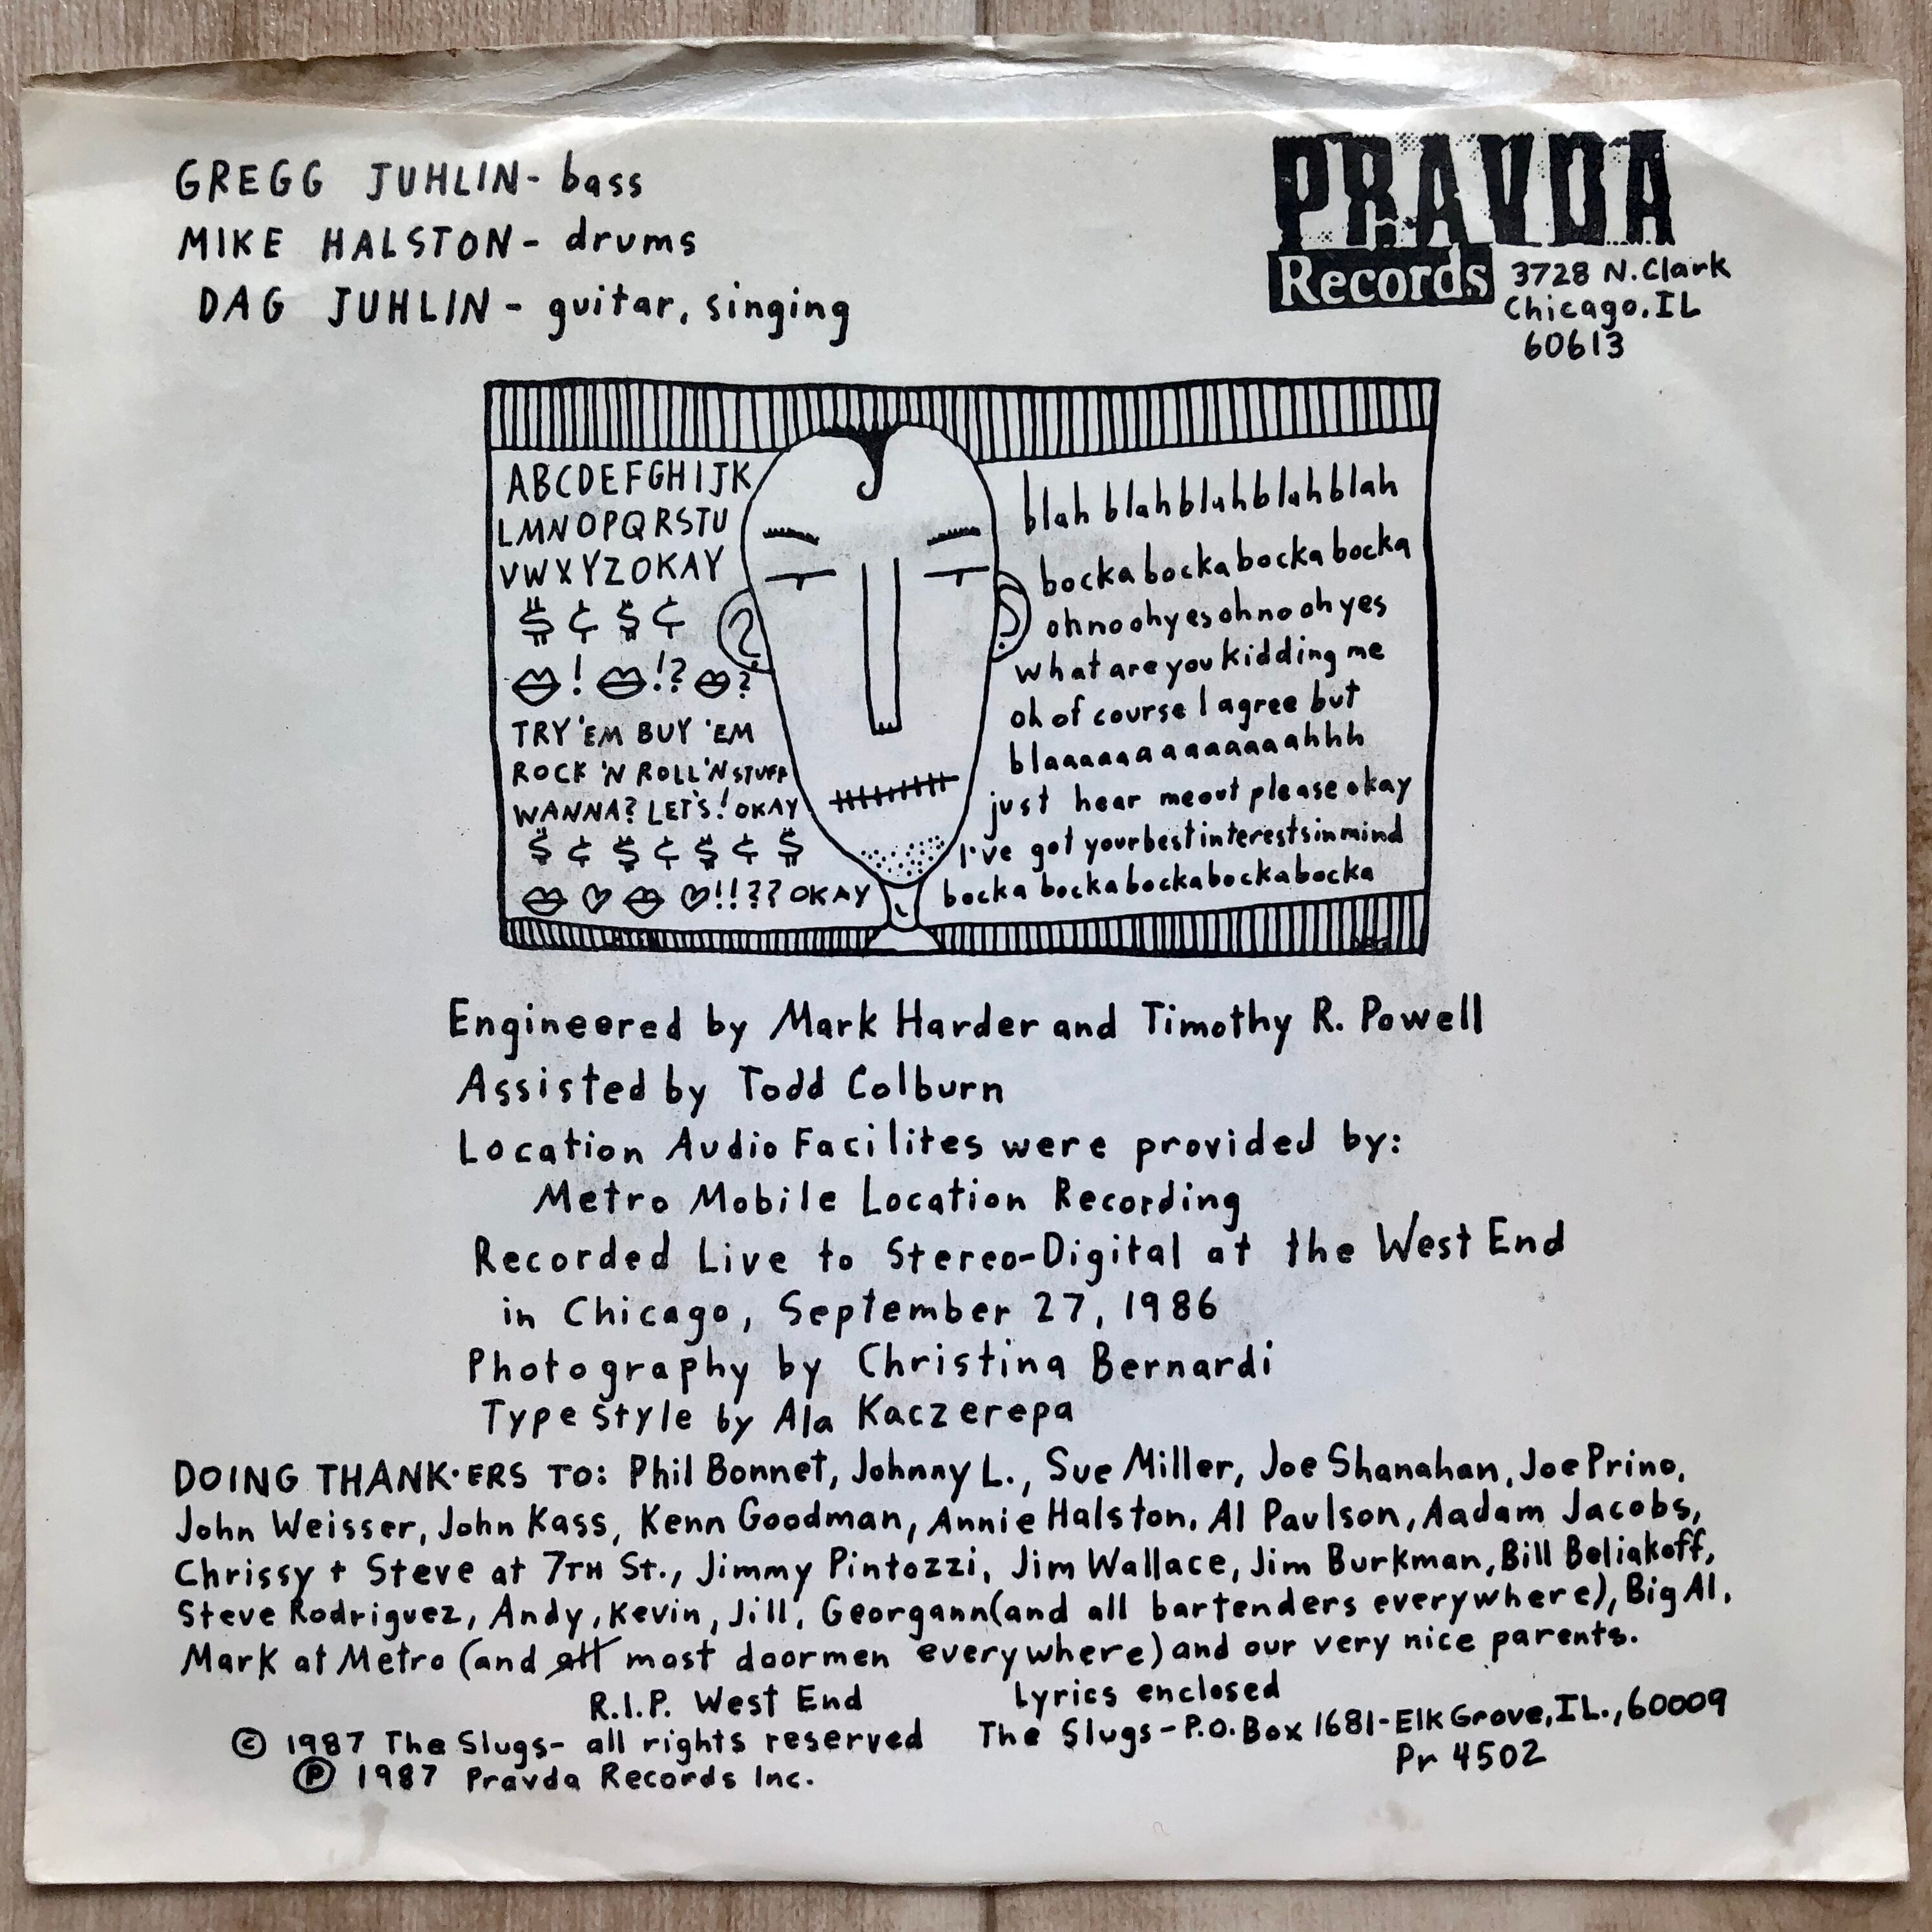 GREGG JUHLIN- bass
MIKE HALSTON- drums
DAG JUHLIN- guitar, singing
PRAVDA
Records
3728 N. Clark
Chicago, IL
60613
ABCDEFGHIJK
LMNOPQRSTU
VWXYZOKAY
$ ¢ $ ¢
! !? ?
TRY 'EM BUY 'EM
ROCK 'N ROLL 'N STUFF
WANNA? LET'S! OKAY
$ ¢ $ ¢ $ ¢ $
♡ ♡!!?? OKAY
blah blahblahblahblah
bocka bocka bocka bocka
ohnoohyesohnoohyes
what are you kidding me
oh of course I agree but
blaaaaaaaaaaaaaahhh
just hear meout please okay
I've got yourbestinterestsinmind
bocka bockabockabockabocka
Engineered by Mark Harder and Timothy R. Powell
Assisted by Todd Colburn
Location Audio Facilites were provided by:
Metro Mobile Location Recording
Recorded Live to Stereo-Digital at the West End
in Chicago, September 27, 1986
Photography by Christina Bernardi
Type style by Ala Kaczerepa
DOING THANK·ERS TO: Phil Bonnet, Johnny L., Sue Miller, Joe Shanahan, Joe Prino,
John Weisser, John Kass, Kenn Goodman, Annie Halston, Al Paulson, Aadam Jacobs,
Chrissy + Steve at 7TH St., Jimmy Pintozzi, Jim Wallace, Jim Burkman, Bill Beliakoff,
Steve Rodriguez, Andy, Kevin, Jill, Georgann (and all bartenders everywhere), Big Al,
Mark at Metro (and all most doormen everywhere) and our very nice parents.
R.I.P. West End
Lyrics enclosed
© 1987 The Slugs- all rights reserved
The Slugs - P.O. Box 1681 - Elk Grove, IL., 60009
℗ 1987 Pravda Records Inc.
Pr 4502